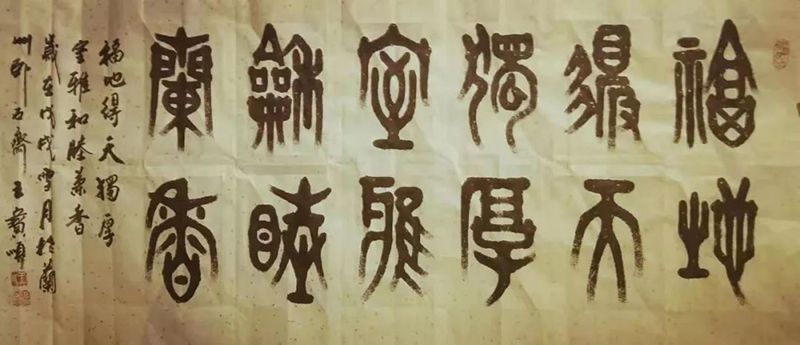 福地
得天
獨厚
室雅
龢睦
蘭香
福地得天獨厚
室雅和睦蘭香
歲在戊戌雪月於蘭
州卧石齋王